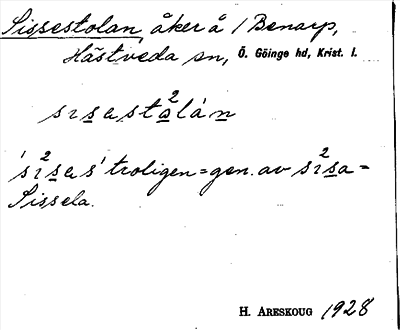 Sissestolan, åker å 1 Benarp,
Hästveda sn, Ö. Göinge hd, Krist. l.
sısasta²lán
'sı²sas' troligen = gen. av sı²sa =
Sissela.
H. ARESKOUG 1928